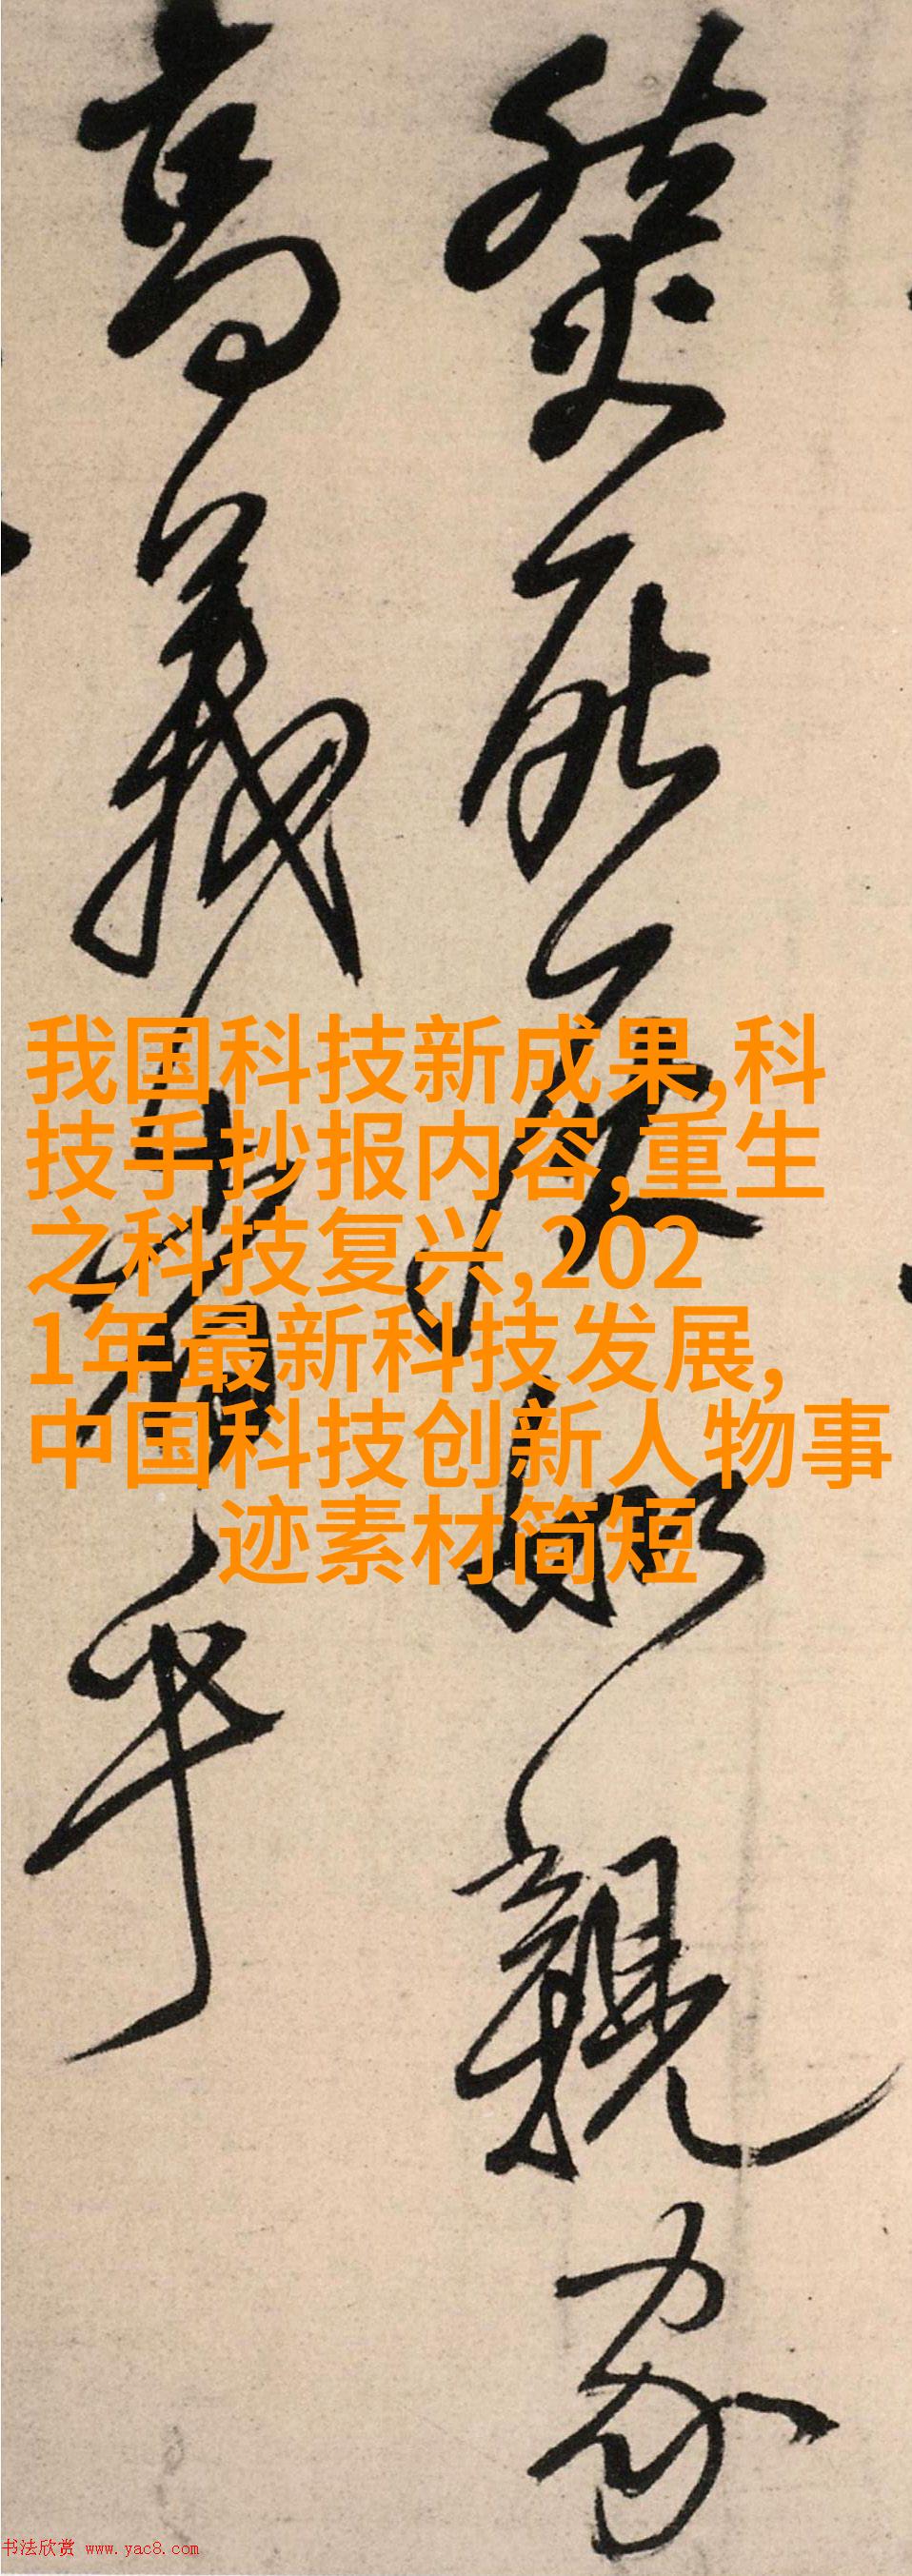 死如親家
高義乎
我国科技新成果,科
技手抄报内容,重生
之科技复兴,202
1年最新科技发展,
中国科技创新人物事
迹素材简短
书法欣赏 www.yac8.com